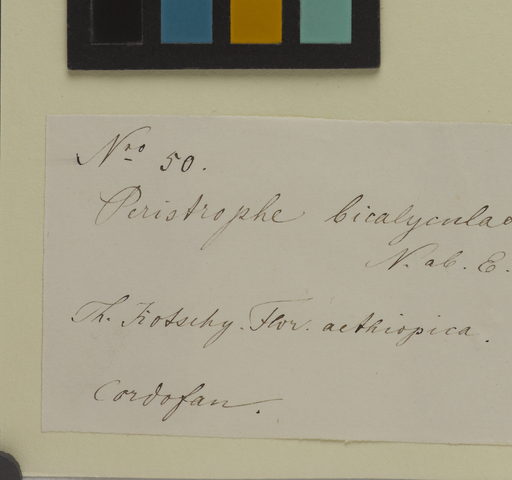 Nro 50.
Peristrophe bicalyculae
N. ab. E.
Th. Kotschy. Flor. aethiopica.
Cordofan.